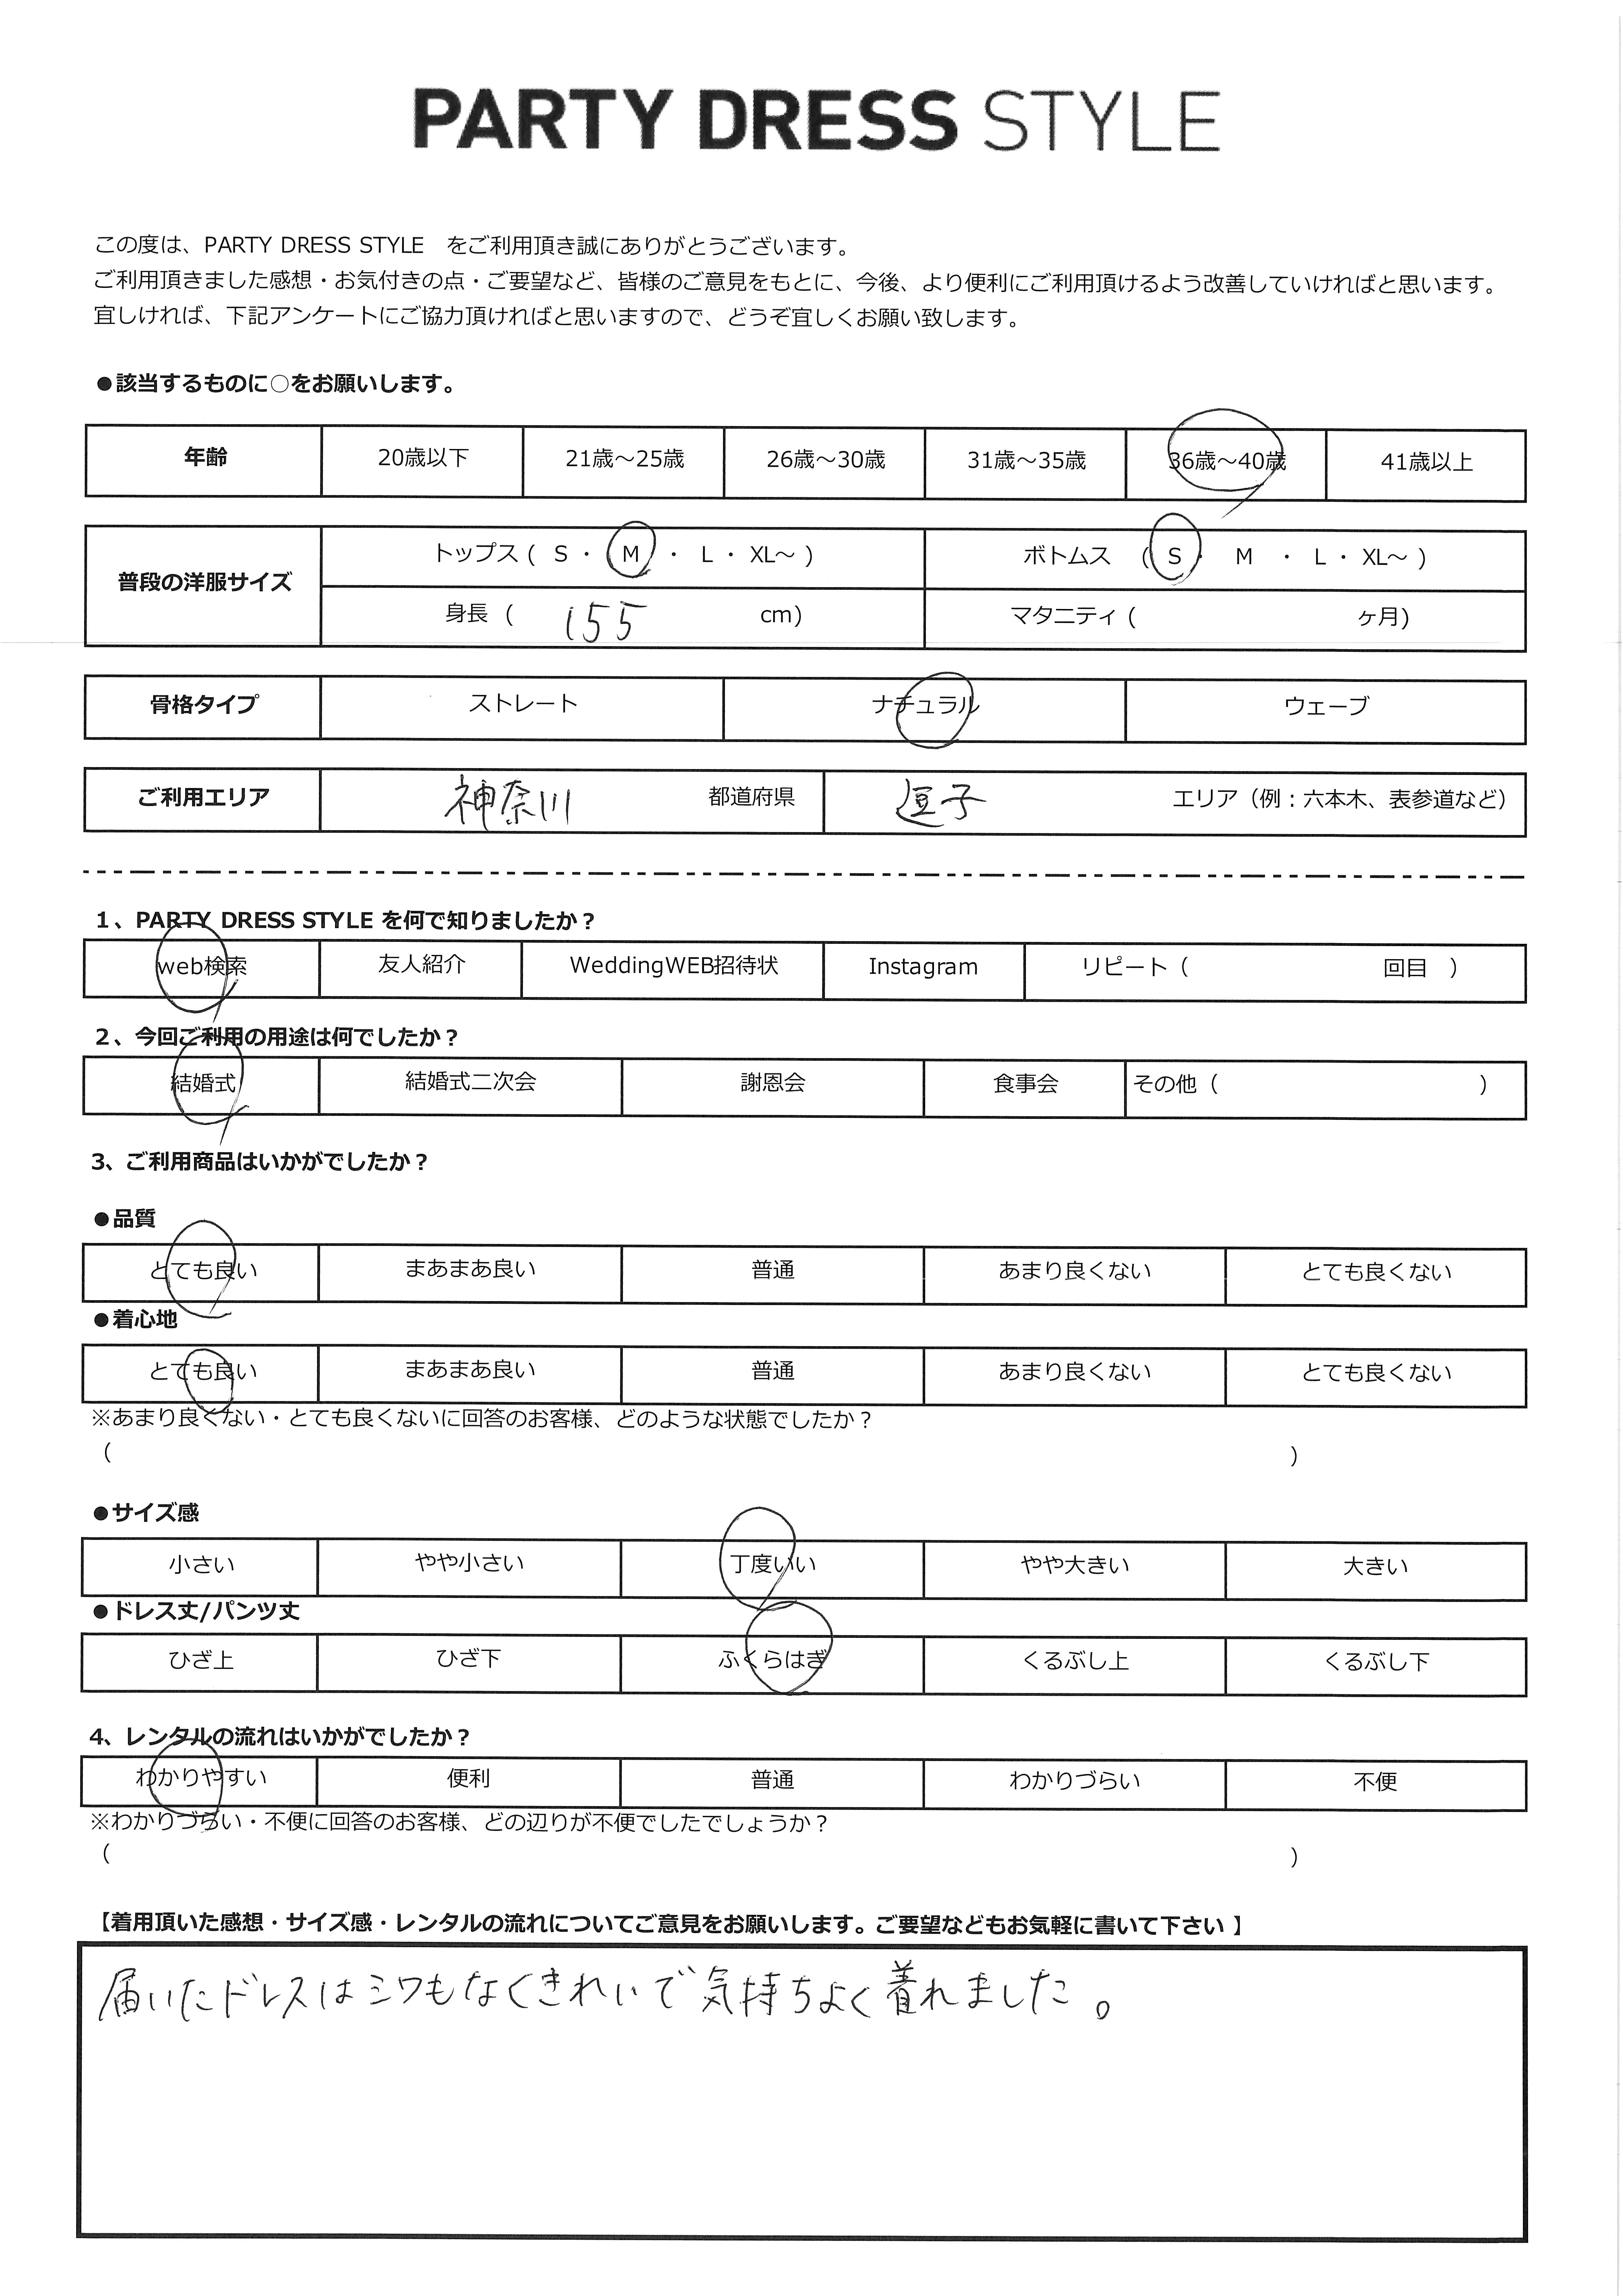 PARTY DRESS STYLE
この度は、PARTY DRESS STYLE　をご利用頂き誠にありがとうございます。
ご利用頂きました感想・お気付きの点・ご要望など、皆様のご意見をもとに、今後、より便利にご利用頂けるよう改善していければと思います。
宜しければ、下記アンケートにご協力頂ければと思いますので、どうぞ宜しくお願い致します。
●該当するものに○をお願いします。
年齢 20歳以下 21歳～25歳 26歳～30歳 31歳～35歳 36歳～40歳 41歳以上
普段の洋服サイズ
トップス ( S ・ M ・ L ・ XL～ ) ボトムス ( S ・ M ・ L ・ XL～ )
身長 ( 155 cm) マタニティ ( ヶ月)
骨格タイプ ストレート ナチュラル ウェーブ
ご利用エリア 神奈川 都道府県 逗子 エリア（例：六本木、表参道など）
1、PARTY DRESS STYLE を何で知りましたか？
web検索 友人紹介 WeddingWEB招待状 Instagram リピート（ 回目 ）
2、今回ご利用の用途は何でしたか？
結婚式 結婚式二次会 謝恩会 食事会 その他（ ）
3、ご利用商品はいかがでしたか？
●品質
とても良い まあまあ良い 普通 あまり良くない とても良くない
●着心地
とても良い まあまあ良い 普通 あまり良くない とても良くない
※あまり良くない・とても良くないに回答のお客様、どのような状態でしたか？
（ ）
●サイズ感
小さい やや小さい 丁度いい やや大きい 大きい
●ドレス丈/パンツ丈
ひざ上 ひざ下 ふくらはぎ くるぶし上 くるぶし下
4、レンタルの流れはいかがでしたか？
わかりやすい 便利 普通 わかりづらい 不便
※わかりづらい・不便に回答のお客様、どの辺りが不便でしたでしょうか？
（ ）
【着用頂いた感想・サイズ感・レンタルの流れについてご意見をお願いします。ご要望などもお気軽に書いて下さい 】
届いたドレスはシワもなくきれいで気持ちよく着れました。